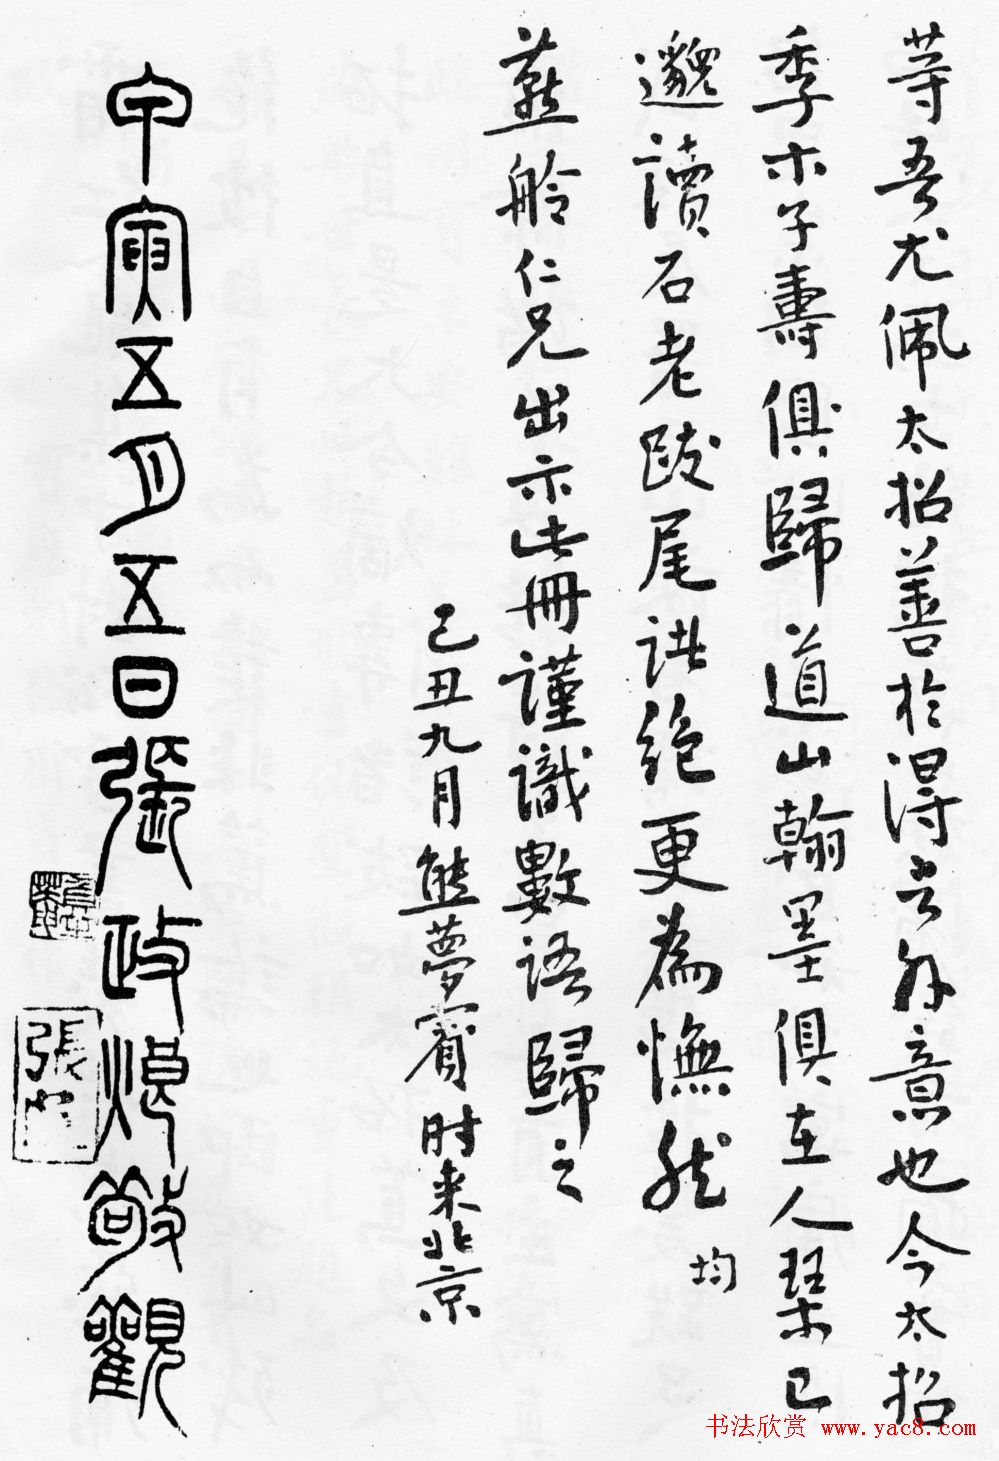 等吾尤佩太招善於得言外意也今太招
季木子壽俱歸道山翰墨俱在人琴已
邈讀石老跋尾誌絶更為憮然 均
燕舲仁兄出示此冊謹識數語歸之
己丑九月熊夢賓時来北京
甲寅五月五日張政烺敬觀
張
书法欣赏 www.yac8.com